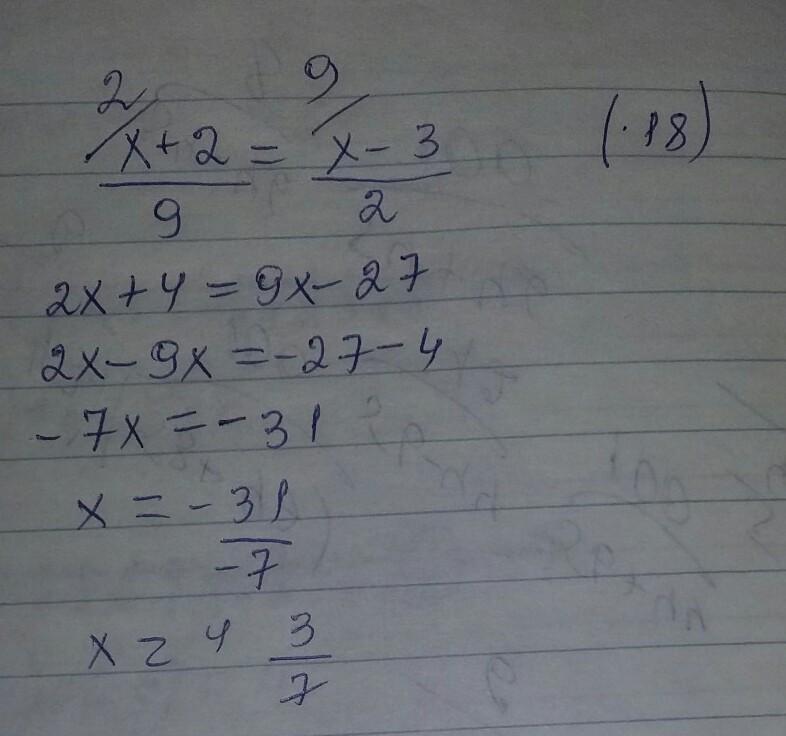 2 9
x+2 = x-3 (·18)
9 2
2x+4 = 9x-27
2x-9x = -27-4
-7x = -31
x = -31
-7
x = 4 3
7